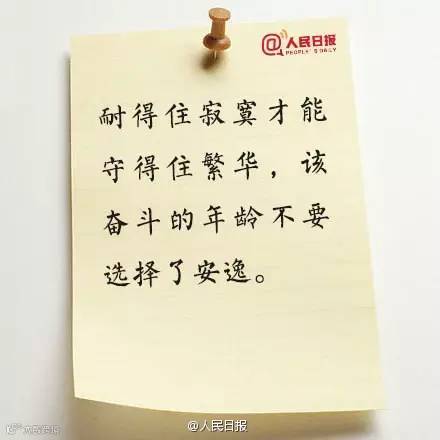 @人民日报
PEOPLE'S DAILY
耐得住寂寞才能
守得住繁华，该
奋斗的年龄不要
选择了安逸。
@人民日报